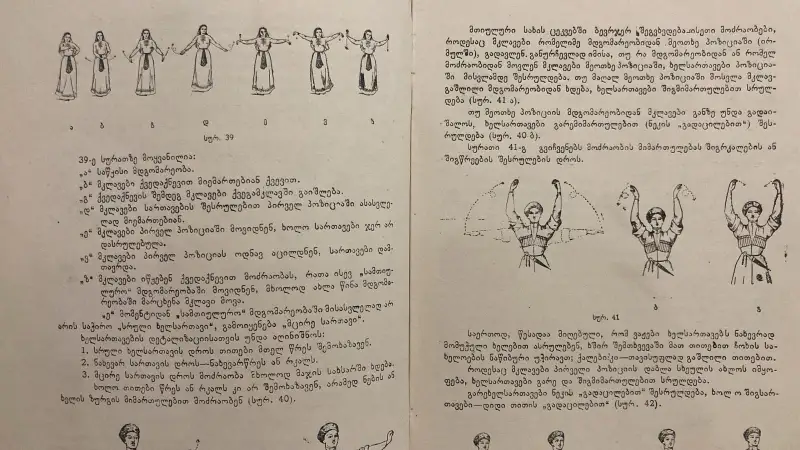 ა ბ გ დ ე ვ ზ
სურ. 39
39-ე სურათზე მოყვანილია:
„ა“ საწყისი მდგომარეობა.
„ბ“ მკლავები ქვედაქნევით მიემართებიან ქვევით.
„გ“ ქვედაქნევის შემდეგ მკლავები ქვეგამკლავში გაიშლება.
„დ“ მკლავები სართავების შესრულებით პირველ პოზიციაში ასასვლე-
ლად მიემართებიან.
„ე“ მკლავები პირველ პოზიციაში მოვიდნენ, ხოლო სართავები ჯერ არ
დასრულებულა.
„ვ“ მკლავები პირველ პოზიციას ოდნავ აცილდნენ, სართავები დამ-
თავრდა.
„ზ“ მკლავები იწყებენ ქვედაქნევით მოძრაობას, რათა ისევ „სამთიუ-
ლურო“ მდგომარეობაში მოვიდნენ, მხოლოდ ახლა წინა მდგომა-
რეობაში მარცხენა მკლავი მოვა.
„ე“ მომენტიდან „სამთიულურო“ მდგომარეობაში მისასვლელად არ
არის საჭირო „სრული ხელსართავი“, გამოიყენება „მცირე სართავი“.
ხელსართავების დეტალიზაციისათვის უნდა აღინიშნოს:
1. სრული ხელსართავის დროს თითები მთელ წრეს შემოხაზავენ.
2. ნახევარ სართავის დროს—ნახევარწრეს ან რკალს.
3. მცირე სართავის დროს მოძრაობა მხოლოდ მაჯის სახსარში ხდება.
ხოლო თითები წრეს ან რკალს კი არ შემოხაზავენ, არამედ ნების ან
ხელის ზურგის მიმართულებით მოძრაობენ (სურ. 40).
მთიულური სახის ცეკვებში ბევრჯერ შეგვხვდება ისეთი მოძრაობები,
როდესაც მკლავები რომელიმე მდგომარეობიდან მეოთხე პოზიციაში (ირ-
მულში), გადავლენ. განურჩევლად იმისა, თუ რა მდგომარეობიდან ან რომელ
მოძრაობიდან მოვლენ მკლავები მეოთხე პოზიციაში, ხელსართავები პოზიცია-
ში მისვლამდე შესრულდება. თუ მაღალ მეოთხე პოზიციაში მოსვლა მკლავ-
გაშლილი მდგომარეობიდან ხდება, ხელსართავები შიგმიმართულებით სრულ-
დება (სურ. 41 ა).
თუ მეოთხე პოზიციის მდგომარეობიდან მკლავები განზე უნდა გადაი-
შალოს, ხელსართავები გარემიმართულებით (ნეკის „გადაცილებით“) შეს-
რულდება (სურ. 40 ბ).
სურათი 41-გ გვიჩვენებს მოძრაობის მიმართულებას შიგრკალების ან
შიგწრეების შესრულების დროს.
ბ გ
სურ. 41
საერთოდ, წესადაა მიღებული, რომ ვაჟები ხელსართავებს ნახევრად
მომუჭული ხელებით ასრულებენ, ხშირ შემთხვევაში მათ თითებით ჩოხის სა-
ხელოების ნაწიბური უჭირავთ; ქალებიკი—თავისუფლად გაშლილი თითებით.
როდესაც მკლავები პირველი პოზიციის დაბლა სხეულის ახლოს იმყო-
ფება, ხელსართავები გარე და შიგმიმართულებით სრულდება.
გარეხელსართავები ნეკის „გადაცილებით“ შესრულდება, ხოლო შიგსარ-
თავები—დიდი თითის „გადაცილებით“ (სურ. 42).